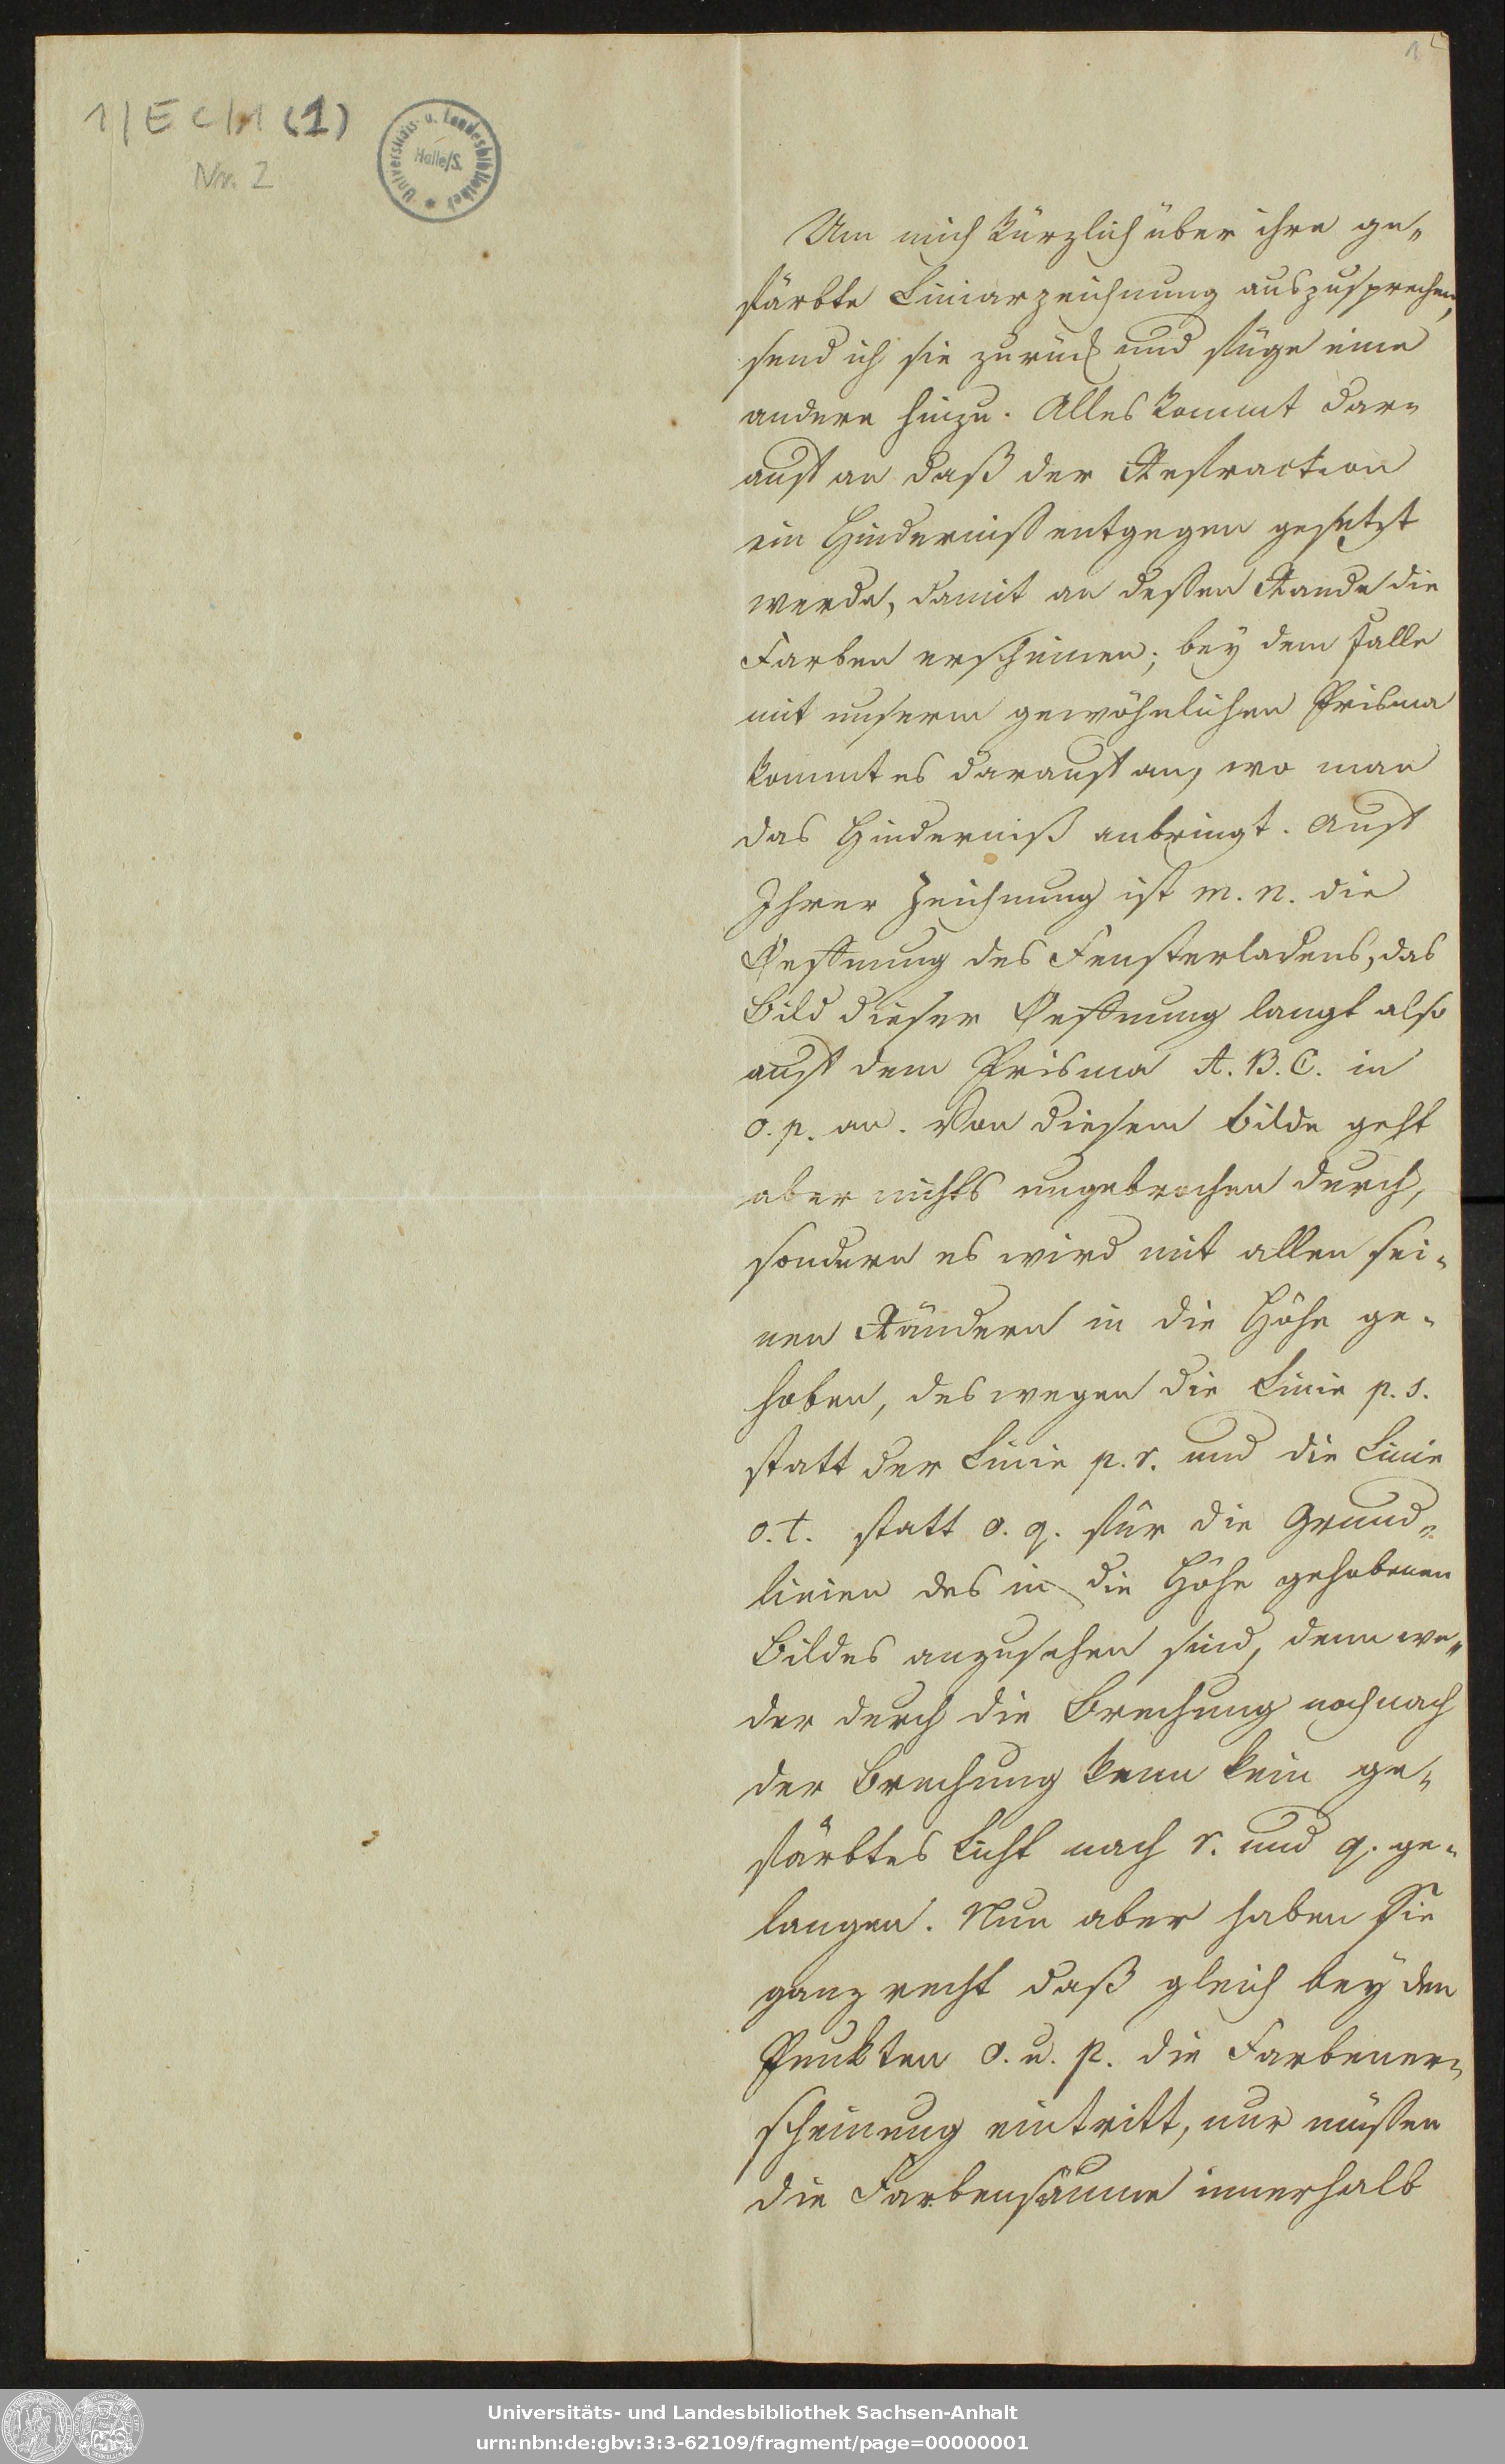 1/EC/1 (1)
Nr. 2
Universitäts- u. Landesbibliothek
Halle/S.
1
Um mich kürzlich über ihre ge-
färbte Liniarzeichnung auszusprechen,
send ich sie zurück und füge eine
andere hinzu. Alles kommt dar-
auf an daß der Refraction
ein Hinderniß entgegen gesetzt
werde, damit an dessen Rande die
Farben erscheinen; bey dem Falle
mit unserm gewöhnlichen Prisma
kommt es darauf an, wo man
das Hinderniß anbringt. Auf
Ihrer Zeichnung ist m. n. die
Oeffnung des Fensterladens, das
Bild dieser Oeffnung langt also
auf dem Prisma A. B. C. in
o. p. an. Von diesem Bilde geht
aber nichts ungebrochen durch,
sondern es wird mit allen sei-
nen Rändern in die Höhe ge-
hoben, deswegen die Linie p. s.
statt der Linie p. r. und die Linie
o. t. statt o. q. für die Grund-
linien des in die Höhe gehobenen
Bildes anzusehen sind, denn we-
der durch die Brechung noch nach
der Brechung kann kein ge-
färbtes Licht nach r. und q. ge-
langen. Nun aber haben Sie
ganz recht daß gleich bey den
Punkten o. u. p. die Farbener-
scheinung eintritt, nur müssen
die Farbensäume innerhalb
Universitäts- und Landesbibliothek Sachsen-Anhalt
urn:nbn:de:gbv:3:3-62109/fragment/page=00000001